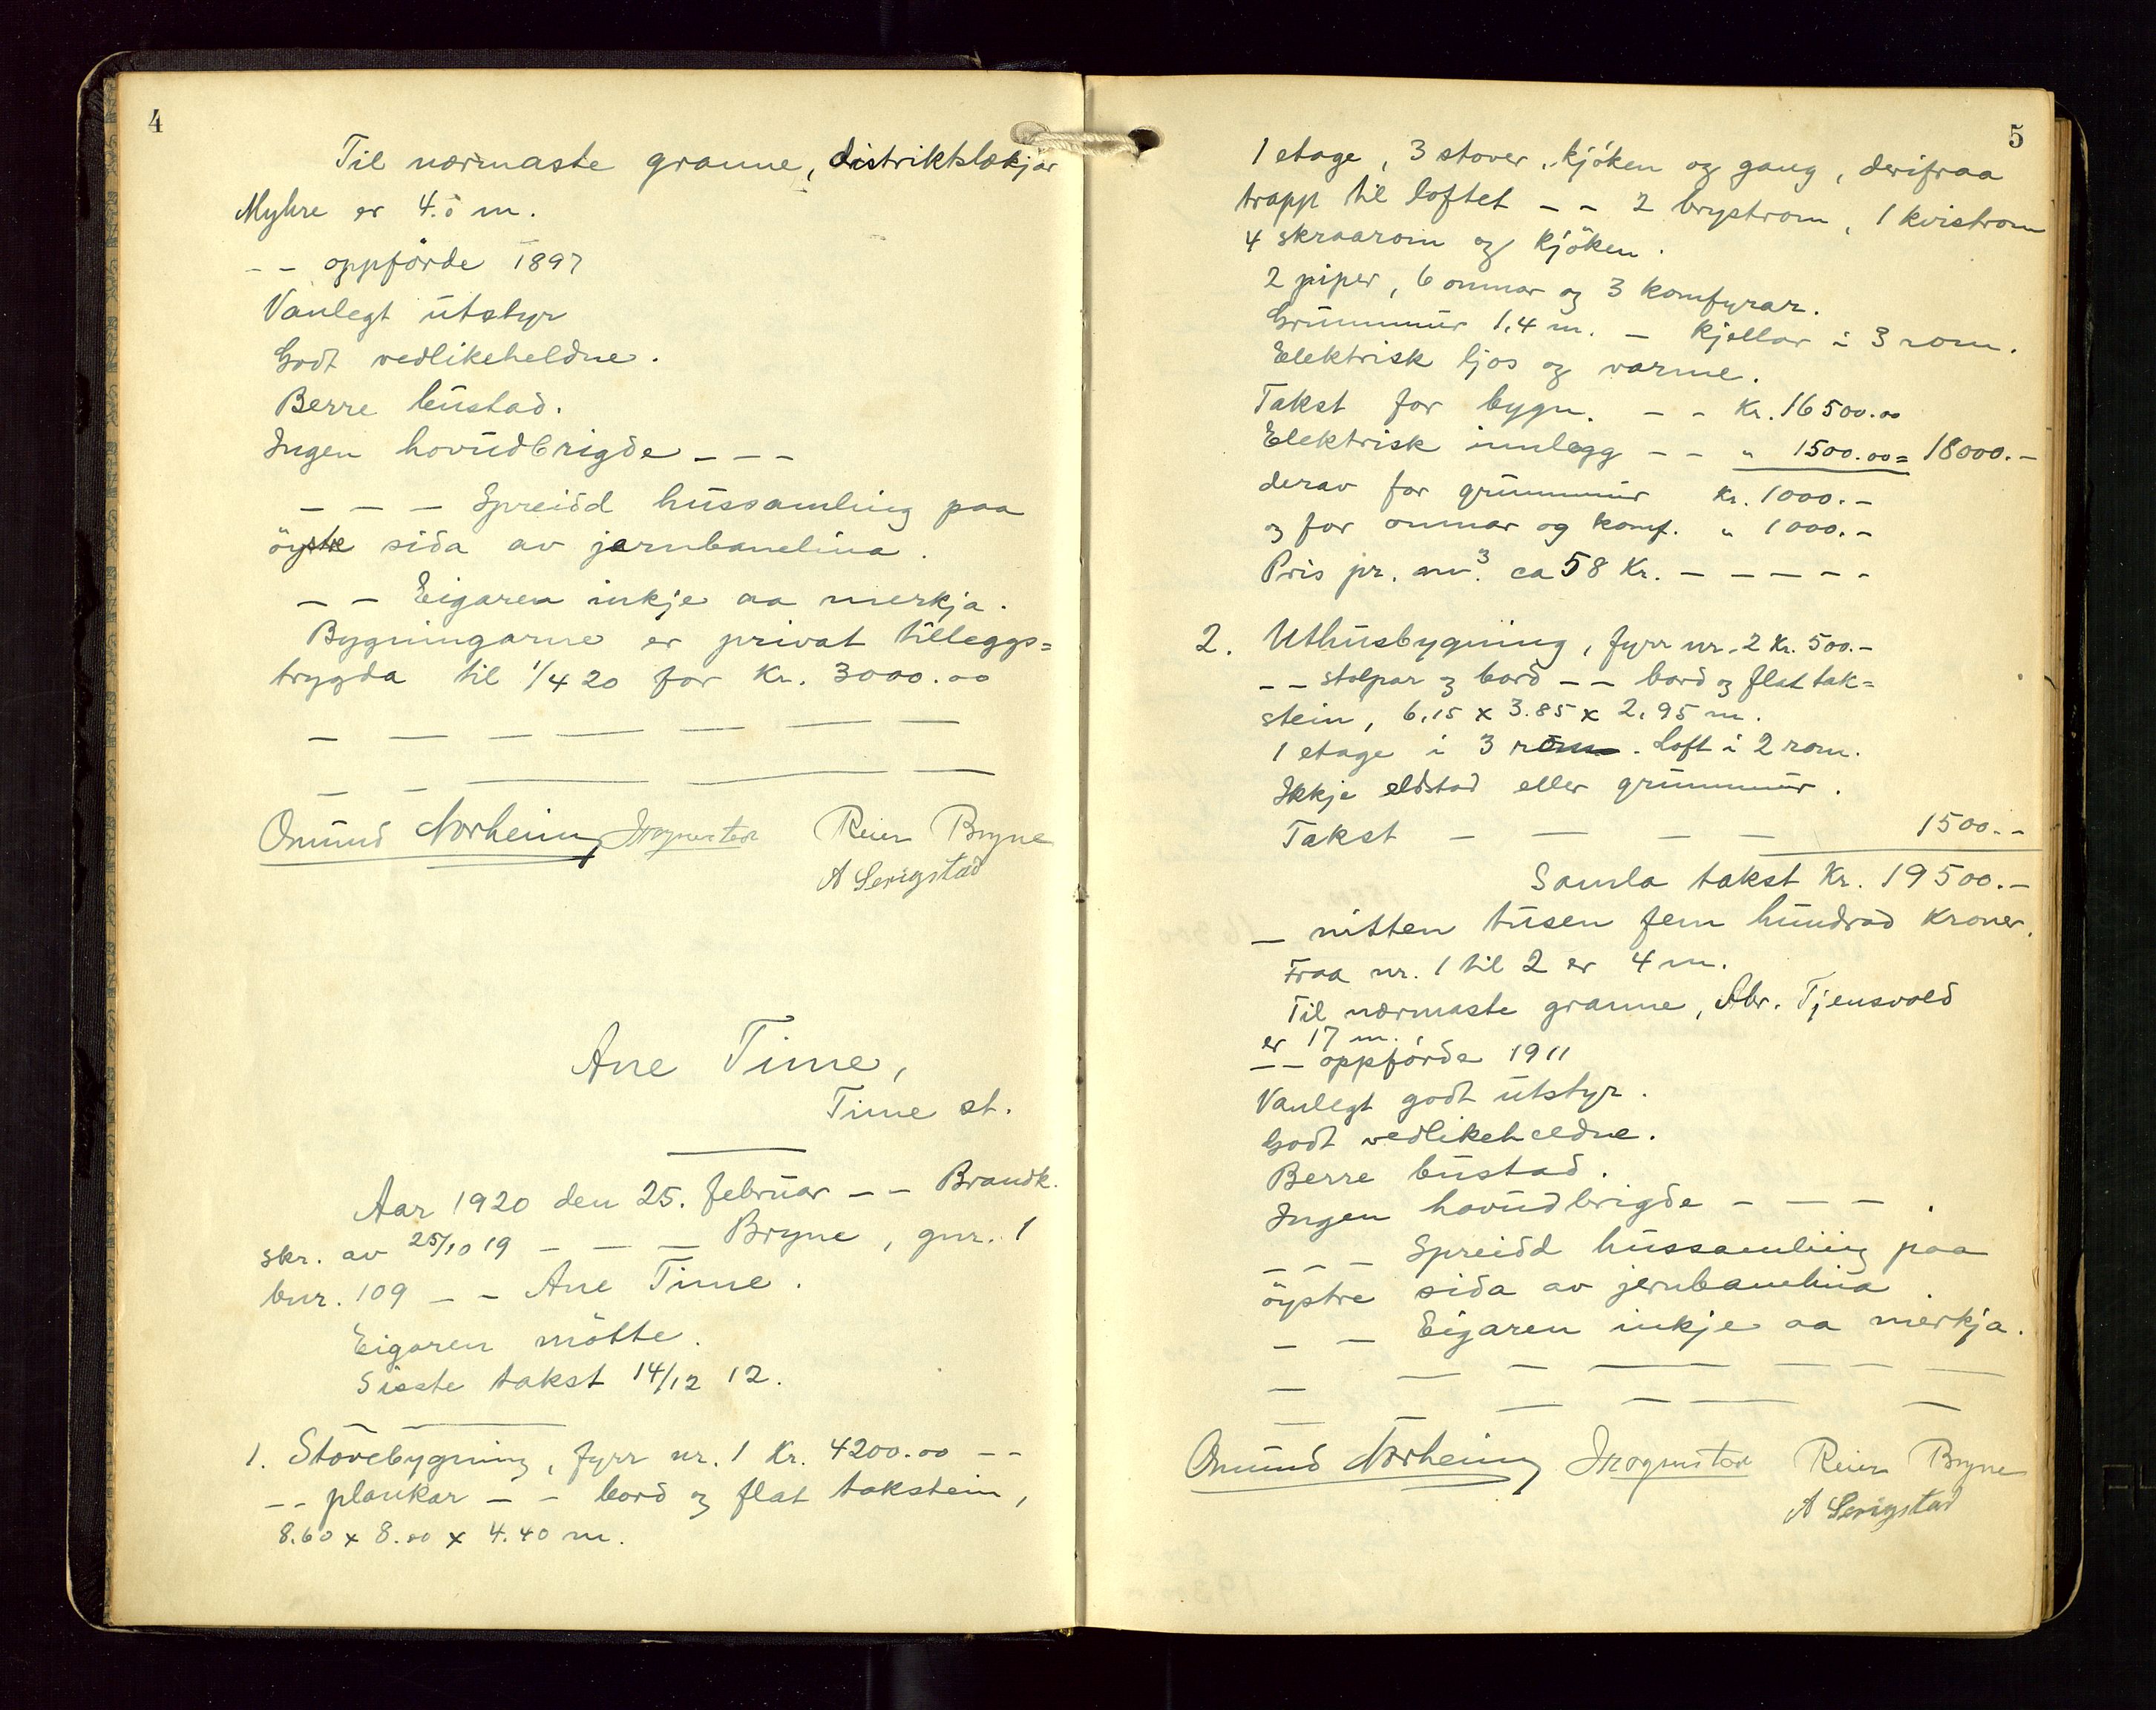 4
Til nærmaste granne, distriktslækjar
Myhre er 4.5 m.
– – oppförde 1897
Vanlegt utstyr
Godt vedlikeheldne.
Berre bustad.
Ingen hovudbrigde – – –
– – – Spreidd hussamling paa
öystre sida av jarnbanelina.
– – Eigaren inkje aa merkja.
Bygningarne er privat tilleggs=
trygda til 1/4 20 for Kr. 3000.00
Omund Norheim Reier Bryne
A Serigstad
Ane Time,
Time st.
Aar 1920 den 25. februar – – Brandk.
skr. av 25/10 19 – – – Bryne, gnr. 1
bnr. 109 – – Ane Time.
Eigaren mötte.
Sisste takst 14/12 12.
1. Stovebygning, fyrr nr. 1 Kr. 4200.00 – –
– – plankar – – bord og flat takstein,
8.60 x 8.80 x 4.40 m.
5
1 etage, 3 stover, kjöken og gang, derifraa
trapp til loftet – – 2 brystrom, 1 kvistrom
4 skraarom og kjöken.
2 piper, 6 omnar og 3 komfyrar.
Grunnmur 1,4 m. – Kjellar i 3 rom.
Elektrisk ljos og varme.
Takst for bygn. – – Kr. 16500.00
Elektrisk innlegg – – " 1500.00 = 18000.–
derav for grunnmur Kr. 1000.–
og for omnar og komf. " 1000.–
Pris pr. m³. ca 58 Kr. – – – – –
2. Uthusbygning, fyrr nr. 2 Kr. 500.–
– – stolpar og bord – – bord og flat tak=
stein, 6,15 x 3.85 x 2,95 m.
1 etage i 3 rom. Loft i 2 rom.
Ikkje eldstad eller grunnmur.
Takst – – – – 1500.–
Samla takst Kr. 19500.–
– nitten tusen fem hundrad Kroner.
Fraa nr. 1 til 2 er 4 m.
Til nærmaste granne, Abr. Tjensvold
er 17 m.
– – oppförde 1911
Vanlegt godt utstyr.
Godt vedlikeheldne.
Berre bustad.
Ingen hovudbrigde – – – .
– – – Spreidd hussamling paa
öystre sida av jernbanelina
– – Eigaren inkje aa merkja.
Omund Norheim Reier Bryne
A Serigstad